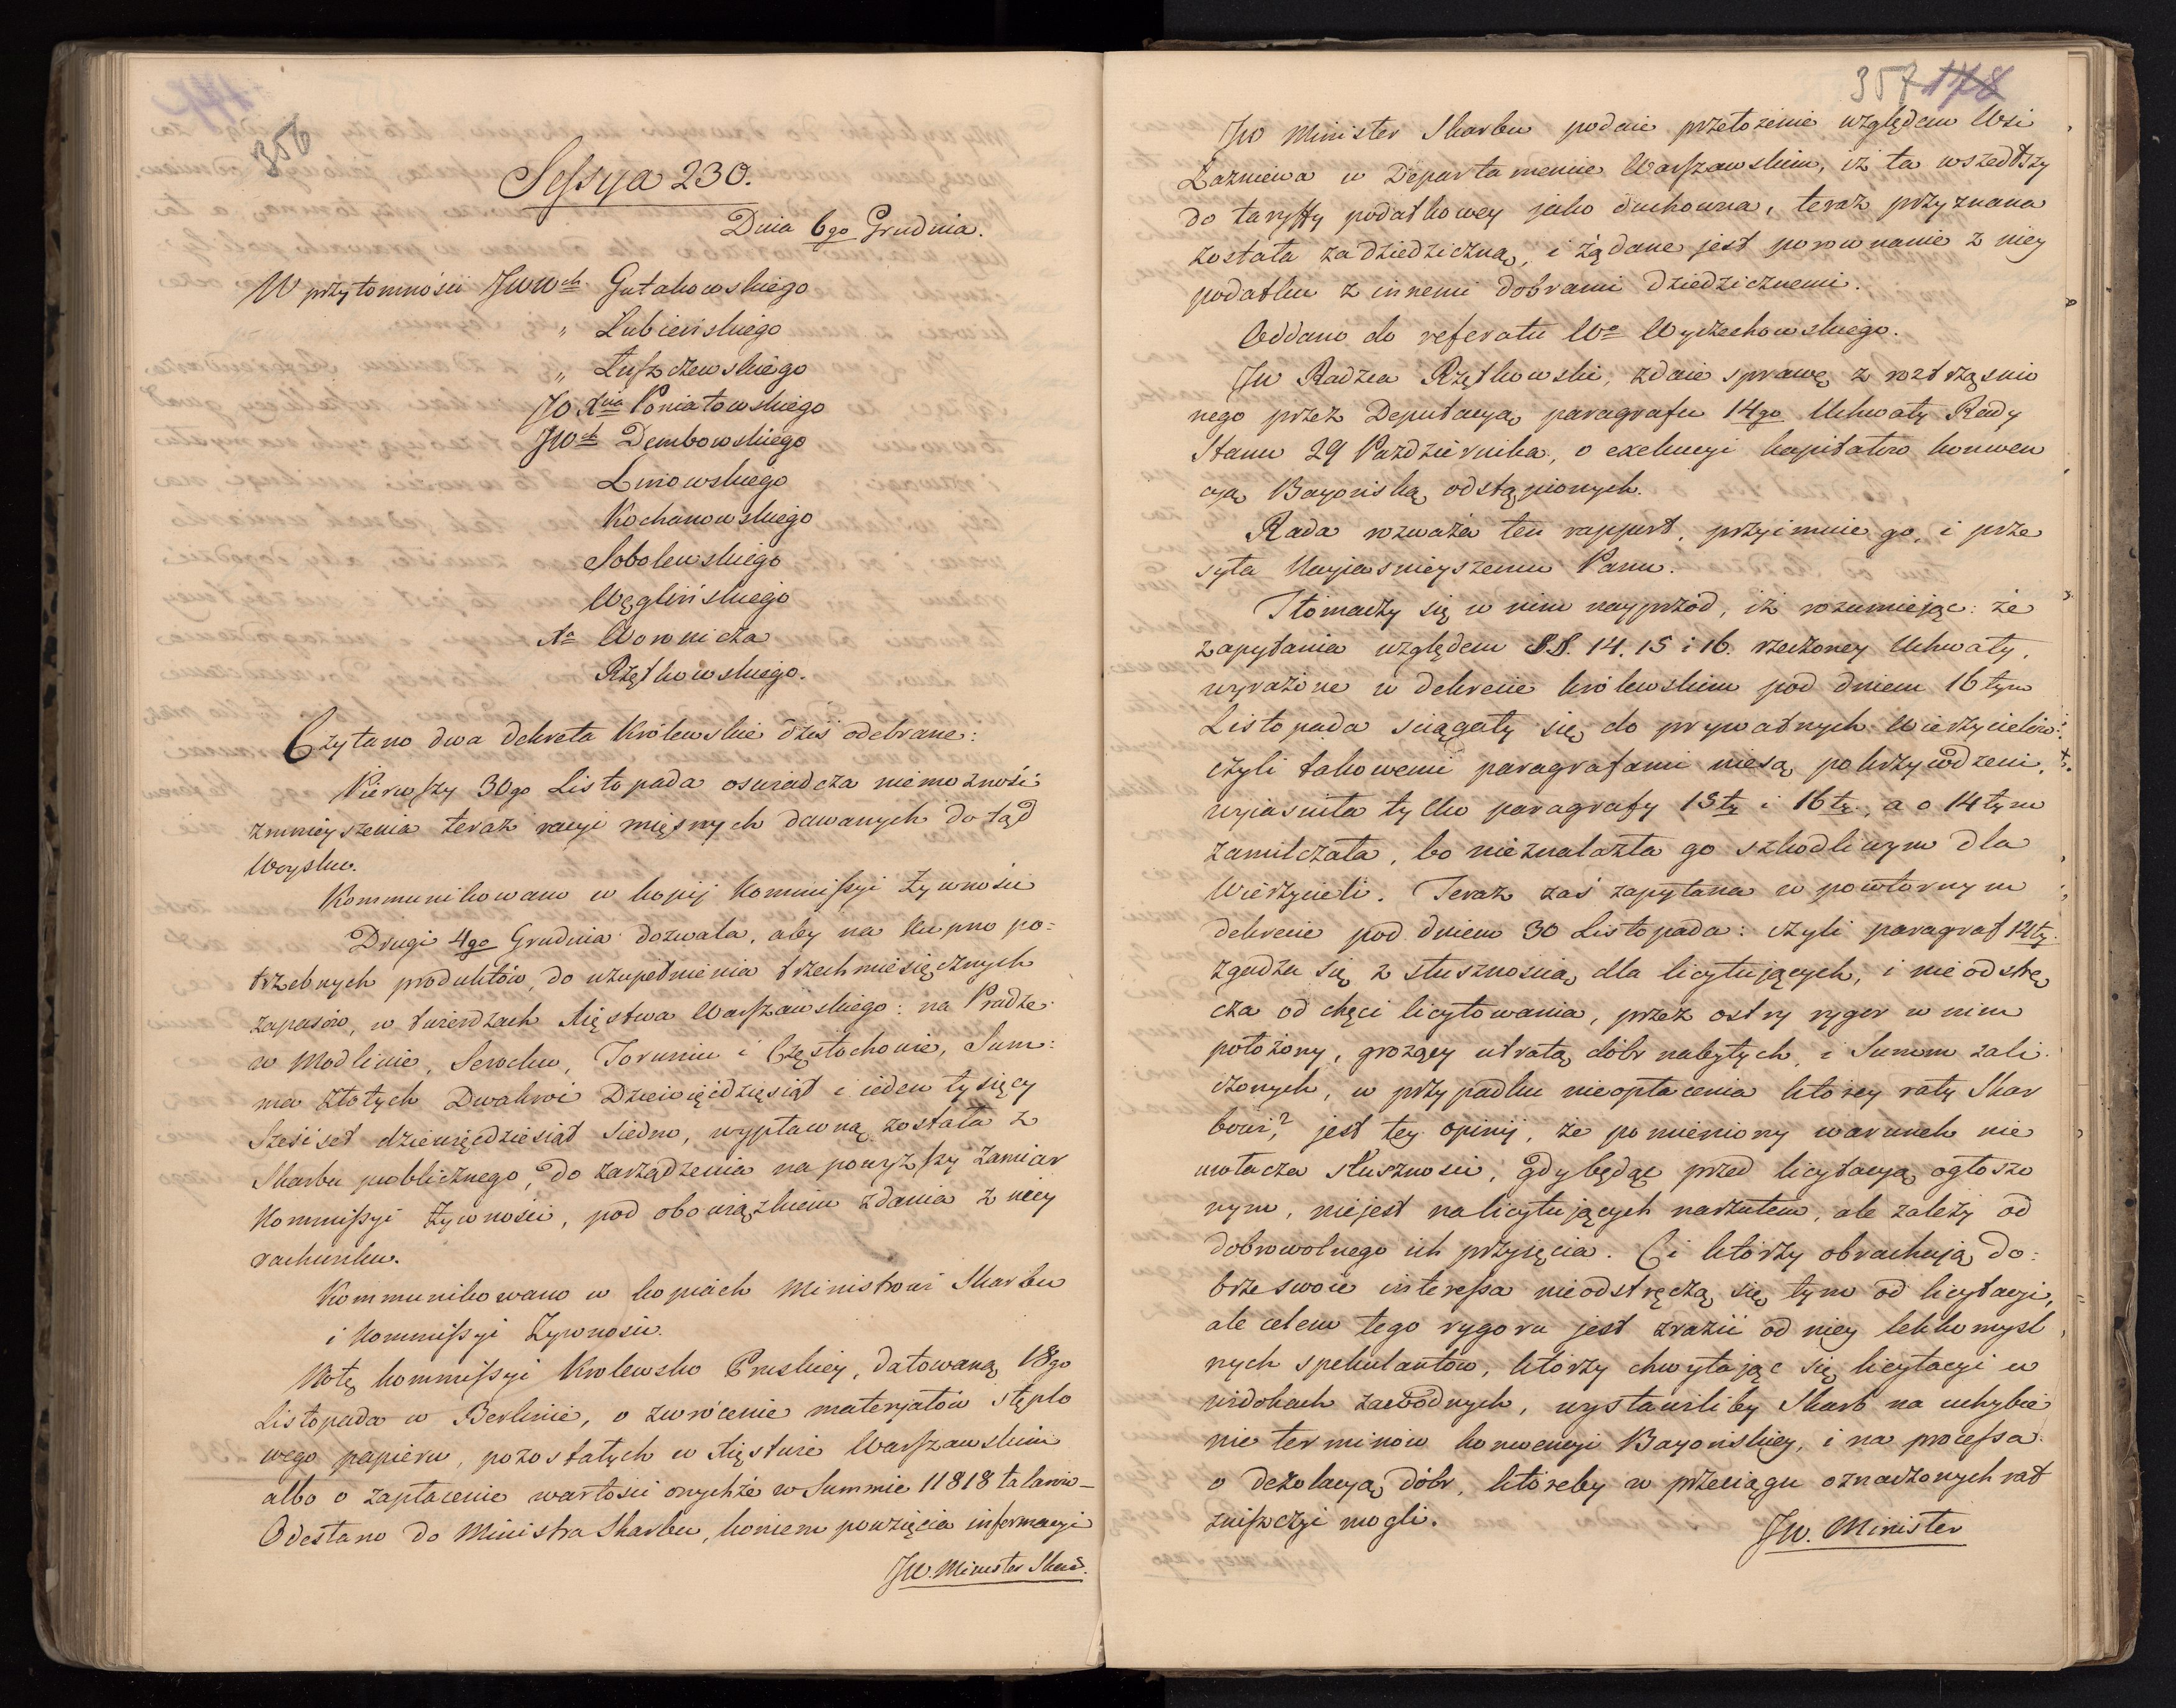 356
Sessya 230.
Dnia 6go Grudnia.
W przytomności JWWch Gutakowskiego
" Łubieńskiego
" Łuszczewskiego
JO Xcia Poniatowskiego
JWch Dembowskiego
Linowskiego
Kochanowskiego
Sobolewskiego
Węglińskiego
Xa Woronicza
Rzętkowskiego.
Czytano dwa dekreta Królewskie dziś odebrane:
Pierwszy 30go Listopada oswiadcza niemożność
zmnieyszenia teraz racyi mięsnych dawanych dotąd
Woysku.
Kommunikowano w kopij Kommissyi Żywności
Drugi 4go Grudnia dozwala, aby na Kupno po=
trzebnych produktów, do uzupełnienia trzechmiesięcznych
zapasów, w twierdzach Xięstwa Warszawskiego: na Pradze
w Modlinie, Serocku, Toruniu i Częstochowie, Sum:
ma Złotych Dwakroć Dziewięćdziesiąt i ieden tysięcy
Sześćset dziewięćdziesiąt siedm, wypłaconą została z
Skarbu publicznego, do zarządzenia na powyższy zamiar
Kommissyi Żywności, pod obowiązkiem zdania z niey
rachunku.
Kommunikowano w kopiach Ministrowi Skarbu
i Kommissyi Żywności.
Notę kommissyi Krolewsko Pruskiey, datowaną 18go
Listopada w Berlinie, o zwrócenie materyałów stęplo
wego papieru, pozostałych w Xięstwie Warszawskim
albo o zapłacenie wartości onychże w Summie 11818 talarów_
Odesłano do Ministra Skarbu, koniem powzięcia informacyi
JW. Minister Skar.
357 178
JW Minister Skarbu podaie przełożenie względem Wsi
Łazniewa w Departamencie Warszawskim, iż ta wszedłszy
do taryffy podatkowey jako duchowna, teraz przyznana
została za dziedziczną, i żądane jest porownanie z niey
podatku z innemi dobrami Dziedzicznemi.
Oddano do referatu Wo Wyczechowskiego.
JW Radzca Rzętkowski, zdaie sprawę z roztrząsnio
nego przez Deputacyą paragrafu 14go Uchwały Rady
Stanu 29 Października, o exekucyi kapitałow konwen
cyą Bayońską odstąpionych.
Rada rozważa ten rapport, przyimuie go, i prze
syła Nayiasnieyszemu Panu.
Tłómaczy się w nim nayprzód, iż rozumiejąc: że
zapytania względem §§. 14. 15 i 16. rzeczoney Uchwały,
wyrażone w dekrecie królewskim pod dniem 16tym
Listopada sciągały się do prywatnych Wierzycielów:
czyli takowemi paragrafami niesą pokrzywdzeni,
wyiasniła tylko paragrafy 15ty i 16ty, a o 14tym
zamilczała, bo nieznalazła go szkodliwym dla
Wierzycieli. Teraz zaś zapytana w powtornym
dekrecie pod dniem 30 Listopada: czyli paragraf 14ty
zgadza się z słusznoscią dla licytujących, i nie odstrę
cza od chęci licytowania, przez ostry rygor w nim
położony, grożący utratą dóbr nabytych, i Summ zali
czonych, w przypadku nieopłacenia którey raty Skar
bowi? jest tey opinij, że pomieniony warunek nie
uwłacza słuszności, gdy będąc przed licytacyą ogłoszo
nym, niejest na licytujących narzutem, ale zależy od
dobrowolnego ich przyjęcia. Ci którzy obrachują do:
brze swoie interessa nieodstręczą się tym od licytacyi,
ale celem tego rygoru jest zrazić od niey lekkomyśl
nych spekulantów, którzy chwytając się licytacyi w
widokach zawodnych, wystawiliby Skarb na uchybie
nie terminów konwencyi Bayońskiey, i na processa
o dezolacyą dóbr, któreby w przeciągu oznaczonych rat
zniszczyć mogli.
JW. Minister